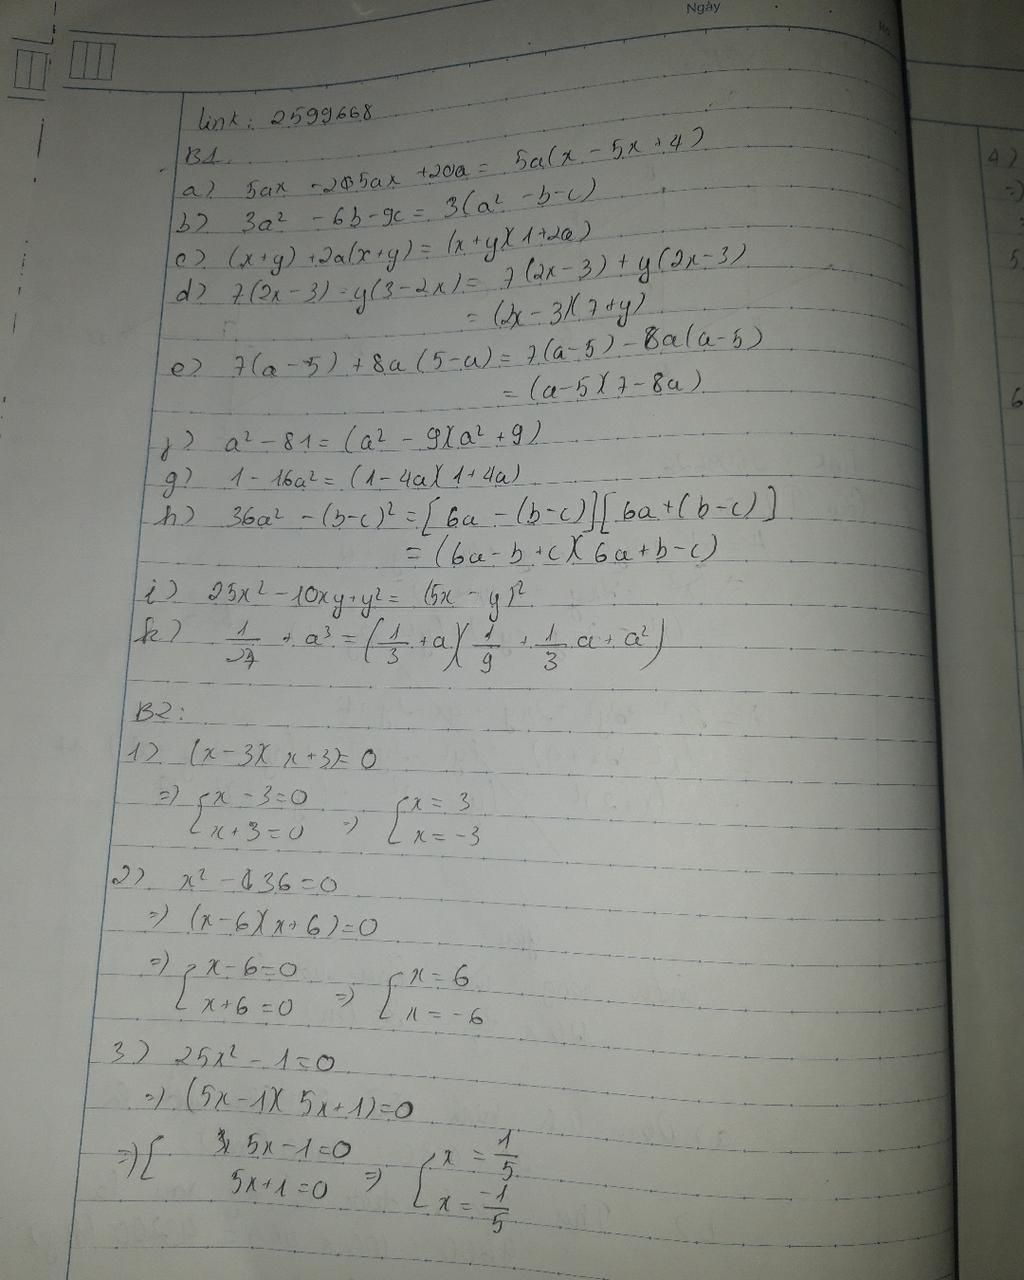 Ngày
No.
link: 2599668
B1.
a) 5ax - 25ax + 20a = 5a(x - 5x + 4)
b) 3a² - 6b - 9c = 3(a² - b - c)
c) (x+y) + 2a(x+y) = (x+y)(1+2a)
d) 7(2x-3) - y(3-2x) = 7(2x-3) + y(2x-3)
= (2x-3)(7+y)
e) 7(a-5) + 8a(5-a) = 7(a-5) - 8a(a-5)
= (a-5)(7-8a)
f) a² - 81 = (a² - 9)(a² + 9)
g) 1 - 16a² = (1-4a)(1+4a)
h) 36a² - (b-c)² = [6a - (b-c)][6a + (b-c)]
= (6a - b + c)(6a + b - c)
i) 25x² - 10xy + y² = (5x - y)²
k) 1/27 + a³ = (1/3 + a)(1/9 + 1/3 a + a²)
B2:
1) (x-3)(x+3) = 0
=> { x - 3 = 0 => { x = 3
x + 3 = 0 x = -3
2) x² - 36 = 0
=> (x-6)(x+6) = 0
=> { x - 6 = 0 => { x = 6
x + 6 = 0 x = -6
3) 25x² - 1 = 0
=> (5x-1)(5x+1) = 0
=> { 5x - 1 = 0 => { x = 1/5
5x + 1 = 0 x = -1/5
4)
=)
5
6